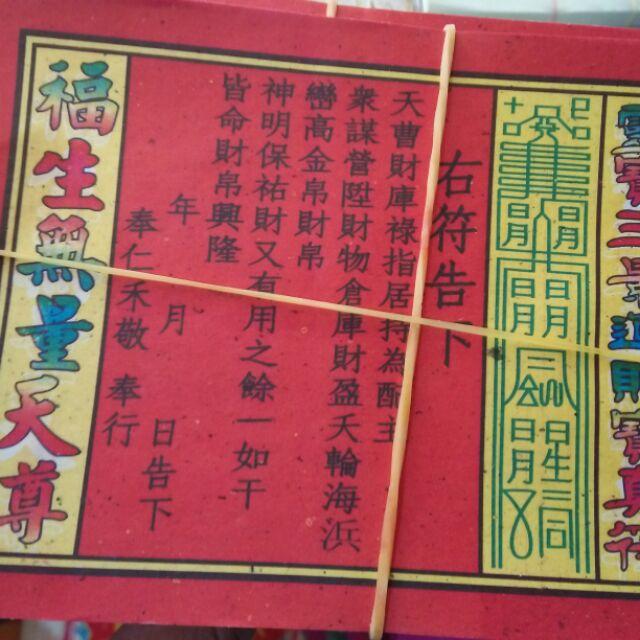 靈寳三昊進財寳真符
右符告下
天曹財庫禄指居持為配主
衆謀營陞財物倉庫財盈天輪海浜
巒高金帛財帛
神明保祐財又有用之餘一如干
皆命財帛興隆
年 月 日告下
奉仁禾敬 奉行
福生無量天尊